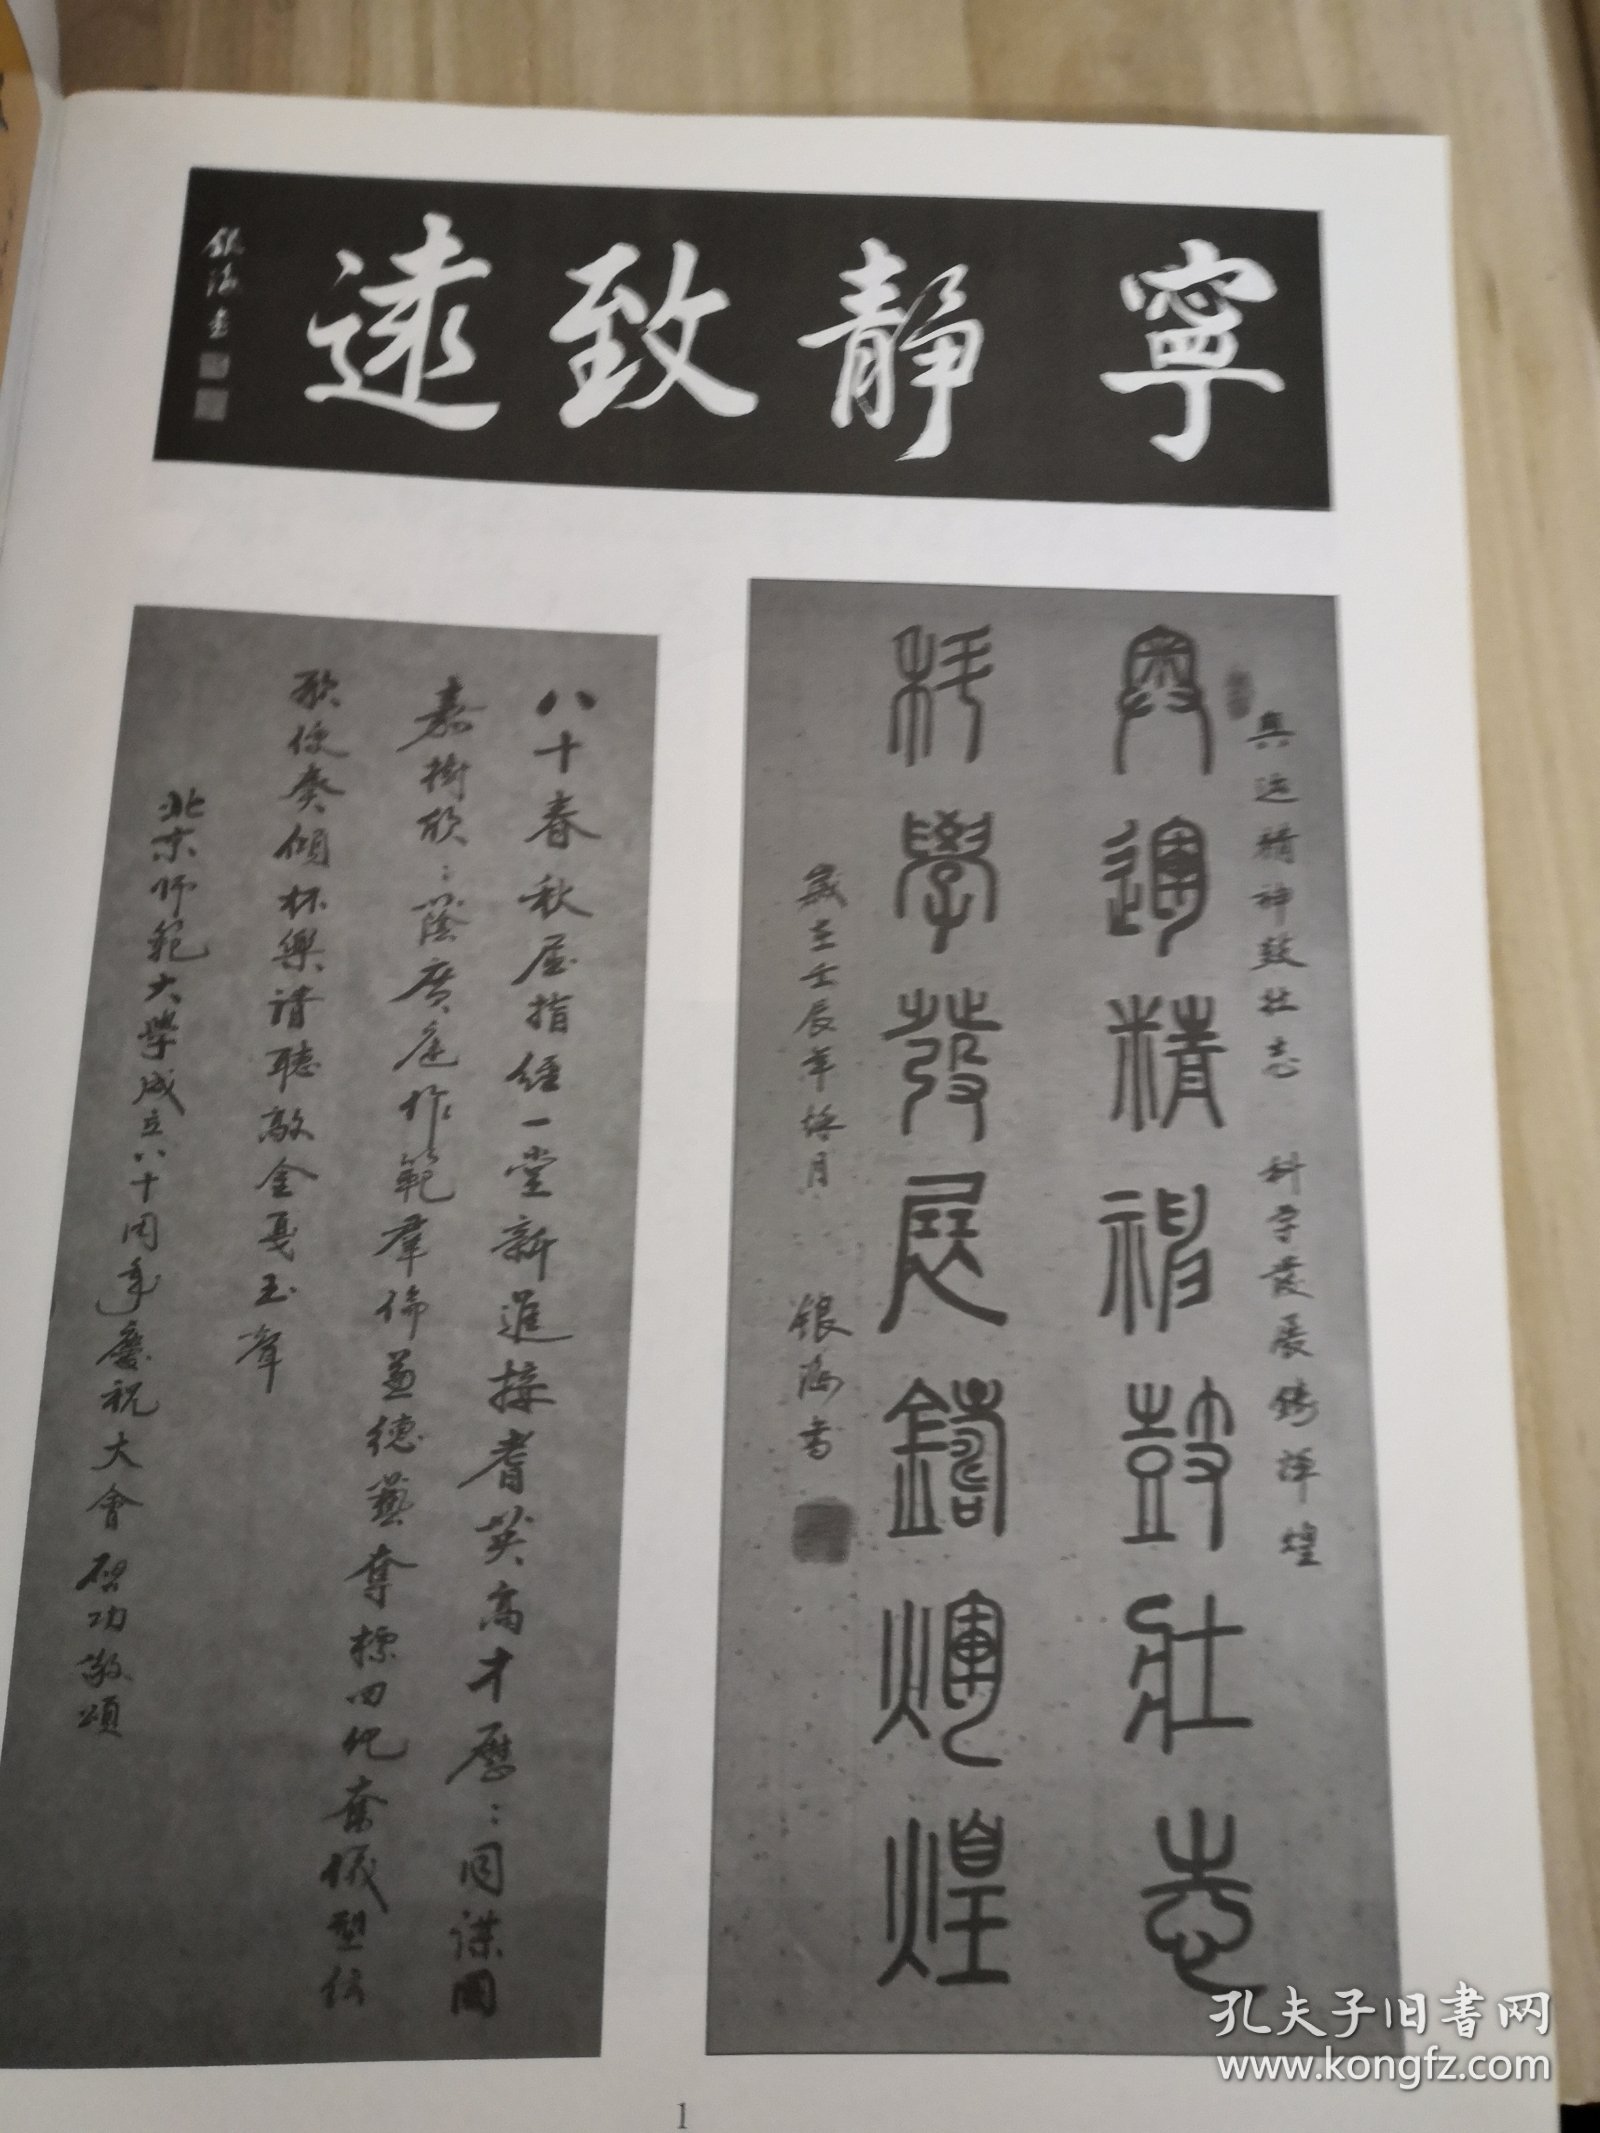 寧靜致遠
銀海書
奧運精神鼓壯志
科學發展鑄輝煌
奥运精神鼓壮志 科学发展铸辉煌
歲在壬辰年梅月 银海书
八十春秋屈指經一堂新進接耆英高才歷：同謀國
嘉樹欣：蔭廣庭作範羣倫兼德藝奪標四化奮儀型
歌僾奏傾杯樂請聽敲金戛玉聲
北京师範大學成立八十周年慶祝大會 启功敬頌
1
孔夫子旧书网
www.kongfz.com